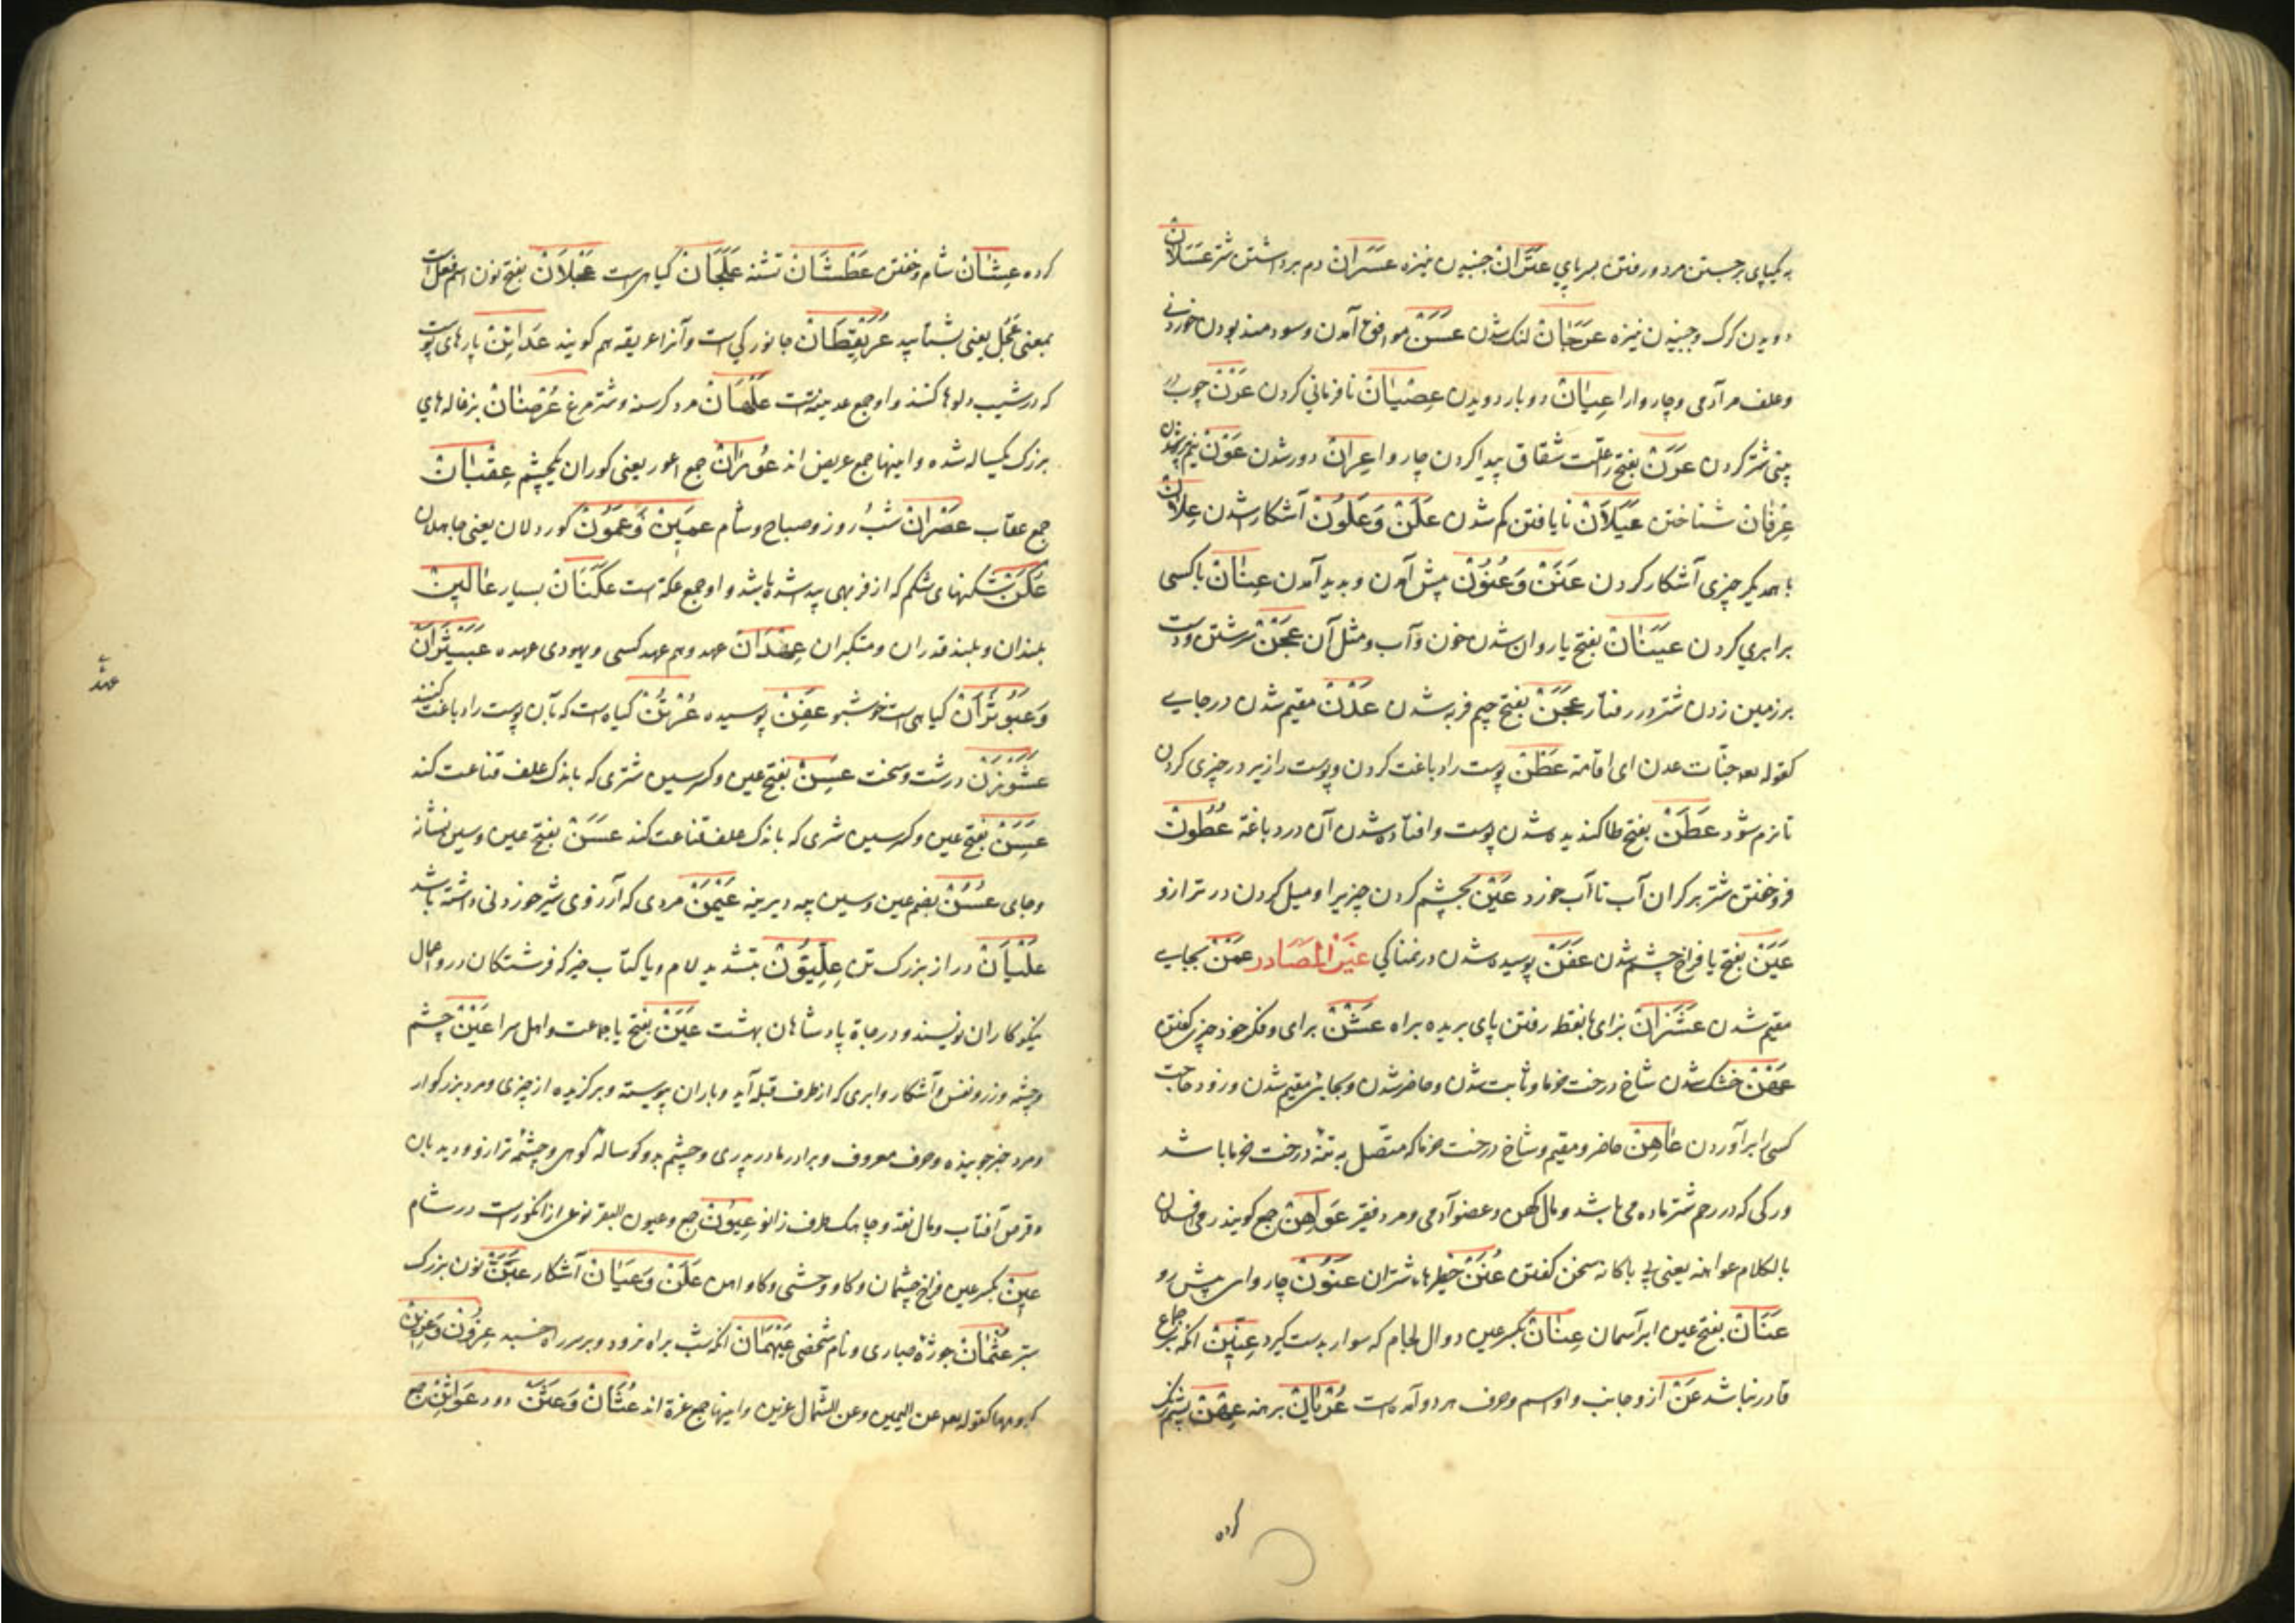 به یکپای برجستن مرد و رفتن بسر پای عَتَرَانْ جنبیدن نیزه عَسَرَانْ دم برداشتن شتر عَسَلَانْ
دویدن گرگ و جنبیدن نیزه عَرَجَانْ لنک شدن عَسَنْ موافق آمدن و سودمند بودن خوردنی
وعلف مر آدمی و چاروا را عِصْیَانْ نافرمانی کردن عَرْنْ چوب در
بینی شتر کردن عَرَنْ بفتح را علت شقاق پیدا کردن چاروا عِرَانْ دور شدن عَوْنْ
عِرْفَانْ شناختن عَیَلَانْ نایافتن کم شدن عَلَنْ وَعَلُونْ آشکار شدن عِلَانْ
با همدیگر چیزی آشکار کردن عَنَنْ وَعُنُونْ پیش آمدن و پدید آمدن عِنَانْ با کسی
برابری کردن عَیَنَانْ بفتح یا روان شدن خون و آب و مثل آن عَجْنْ سرشتن و دست
بر زمین زدن شتر در رفتار عَجَنْ بفتح جیم فربه شدن عَدْنْ مقیم شدن در جایی
کقوله تعه جنّات عدن ای اقامة عَطْنْ پوست را دباغت کردن و پوست را زیر در چیزی کردن
تا نرم شود عَطَنْ بفتح طا کندیده شدن پوست و افتاده شدن آن در دباغة عُطُونْ
فروخفتن شتر بر کران آب تا آب خورد عَیْنْ بچشم کردن چیزیرا و میل کردن در ترازو
عَیَنْ بفتح یا فراخ چشم شدن عَفَنْ پوسیده شدن در نمناکی غَیْرُ الْمَصَادر عَمْنْ بجایی
مقیم شدن عَشَزَانْ بزای با نقط رفتن پای بریده براه عَشْنْ برای و فکر خود چیزی کفتن
عَهْنْ خشک شدن شاخ درخت خرما و ثابت شدن و حاضر شدن و بجایی مقیم شدن و زود حاجت
کسی را برآوردن عَاهِنْ حاضر و مقیم و شاخ درخت خرما که متّصل به تنهٔ درخت خرما باشد
ورکی که در رحم شتر ماده می باشد و مال کهن و عضو آدمی و مرد فقیر عَوَاهِنْ جمع کویند رمی فلان
بالکلام عواهنه یعنی بی باکانه سخن کفتن عُنَنْ حظیرهای شتران عَنُونْ چاروای پیش رو
عَنَانْ بفتح عین ابر آسمان عِنَانْ بکسر عین دوال لجام که سوار بدست کیرد عِنِّینْ آنکه بر جماع
قادر نباشد عَنْ ازو جانب و او اسم و حرف هر دو آمده است عُرْیَانْ برهنه عِهْنْ پشم رنک
کرده
کرده عِشَانْ شام خفتن عَطْشَانْ تشنه عَلَجَانْ کیاهیست عَجْلَانْ بفتح نون اسم فعل است
بمعنی عَجِّلْ یعنی بشتابید عُرَیْقِطَانْ جانورکی است و آنرا عریقطه هم کویند عَدَایِنْ پارهای پوست
که در شیب دلوها کنند و او جمع عدینة است عَلْهَانْ مرد کرسنه و شترمرغ عُرْضَانْ بزغاله های
بزرگ یکساله شده و اینها جمع عریض اند عُورَانْ جمع اعور یعنی کوران یکچشم عِقْبَانْ
جمع عقاب عَصْرَانْ شب و روز و صباح و شام عَمِینَ وَعَمُونْ کوردلان یعنی جاهلان
عُکَنْ شکنهای شکم که از فربهی پیدا شده باشد و او جمع عکنة است عَکَنَانْ بسیار عَالِینْ
بلندان و بلند قدران و متکبران عِهْدَانْ عهد و هم عهد کسی و یهودی عهده عَبَیْثَرَانْ
وَعَبَوْثَرَانْ کیاهیست خوشبو عَفِنْ پوسیده عُرْتُنْ کیاهیست که بآن پوست را دباغت کنند
عَشَوْزَنْ درشت و سخت عَسِنْ بفتح عین و کسر سین شتری که باندک علف قناعت کند
عَسِنْ بفتح عین و کسر سین شتری که باندک علف قناعت کند عَسَنْ بفتح عین و سین نشانه
و جای عُسُنْ بضم عین و سین پیه دیرینه عَیْمَنْ مردی که آرزوی شیر خوردنی داشته باشد
عَلْیَانْ دراز بزرک تن عِلِّیُّونْ بتشدید لام و یا کتاب خیر که فرشتکان درو اعمال
نیکوکاران نویسند و درجاة پادشاهان بهشت عَیَنْ بفتح یا جماعت و اهل سرا عَیْنْ چشم
و چشمه و زر و نفس و آشکار و ابری که از طرف قبله آید و باران پیوسته و برکزیده از چیزی و مرد بزرکوار
و مرد خبر جوینده و حرف معروف و برادر مادر پدری و چشم بد و کوساله کوهی و چشمهٔ ترازو و دیدبان
و قرص آفتاب و مال نقد و چاهک طرف زانو عُیُونْ جمع و عیون البقر نوعی از انکورست در شام
عِینْ بکسر عین فراخ چشمان و کاو وحشی و کاو اهلی عَلَنْ وَعَیَانْ آشکار عَبَنْ نون بزرک
ستبر عُثْمَانْ جوزهٔ حباری و نام شخصی عَیْهَمَانْ آنکه شب براه فرود و بر سر راه خسبد عِزُونْ وَعِزِینْ
کروهها کقوله تعه عن الیمین وعن الشّمال عزین و اینها جمع عزة اند عُثَانْ وَعَثَنْ دود عَوَاثِنْ جمع
عهدة